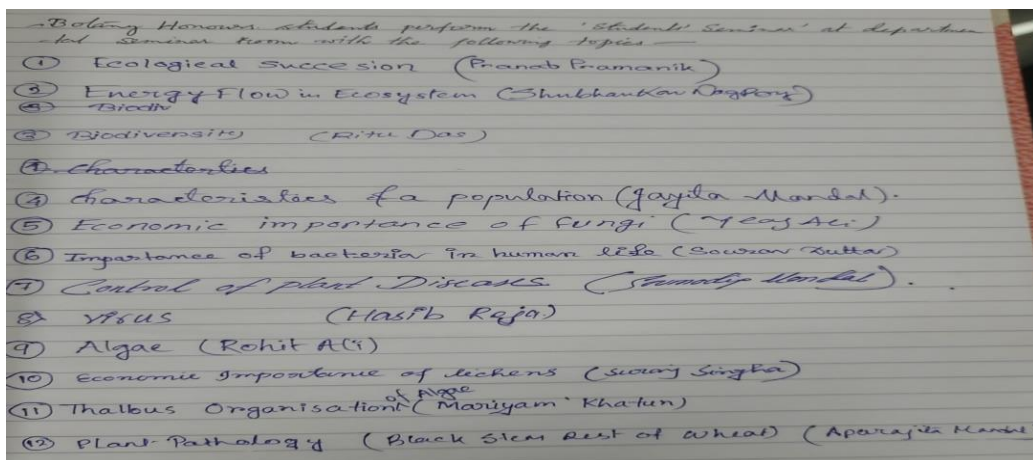 Botany Honours students perform the 'Students' Seminar' at departmen
-tal seminar room with the following topics —
① Ecological succesion (Pranab Pramanik)
② Energy Flow in Ecosystem (Shubhankar
③ Biodiv
③ Biodiversity (Ritu Das)
④ Characterties
④ Characteristics of a population (Jayita Mandal).
⑤ Economic importance of fungi (Yeas Ali)
⑥ Importance of bacteria in human life (Sourav Dutta)
⑦ Control of plant Diseases. (Sumodip Mondal).
8) virus (Hasib Raja)
⑨ Algae (Rohit Ali)
⑩ Economic Importance of lichens (Suraj Singha)
⑪ Thallus Organisation of Algae (Mariyam Khatun)
⑫ Plant Pathology (Black Stem Rust of wheat) (Aparajita